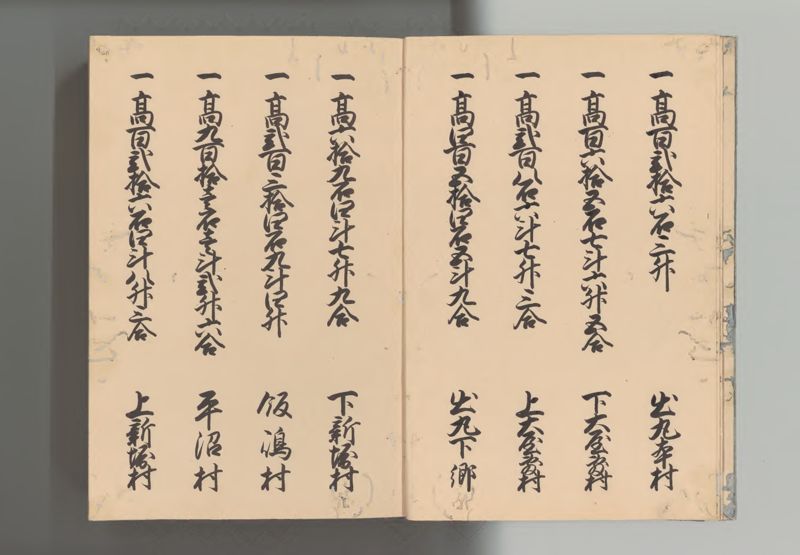 一高百弐拾六石三升 出丸本村
一高百六拾五石七斗六升五合 下大屋敷村
一高弐百八石六斗七升三合 上大屋敷村
一高四百五拾四石五斗九合 出丸下郷
一高六拾九石四斗七升九合 下新堀村
一高弐百三拾四石九斗四升 飯嶋村
一高九百拾壱石壱斗弐升六合 平沼村
一高百弐拾六石四斗八升三合 上新堀村